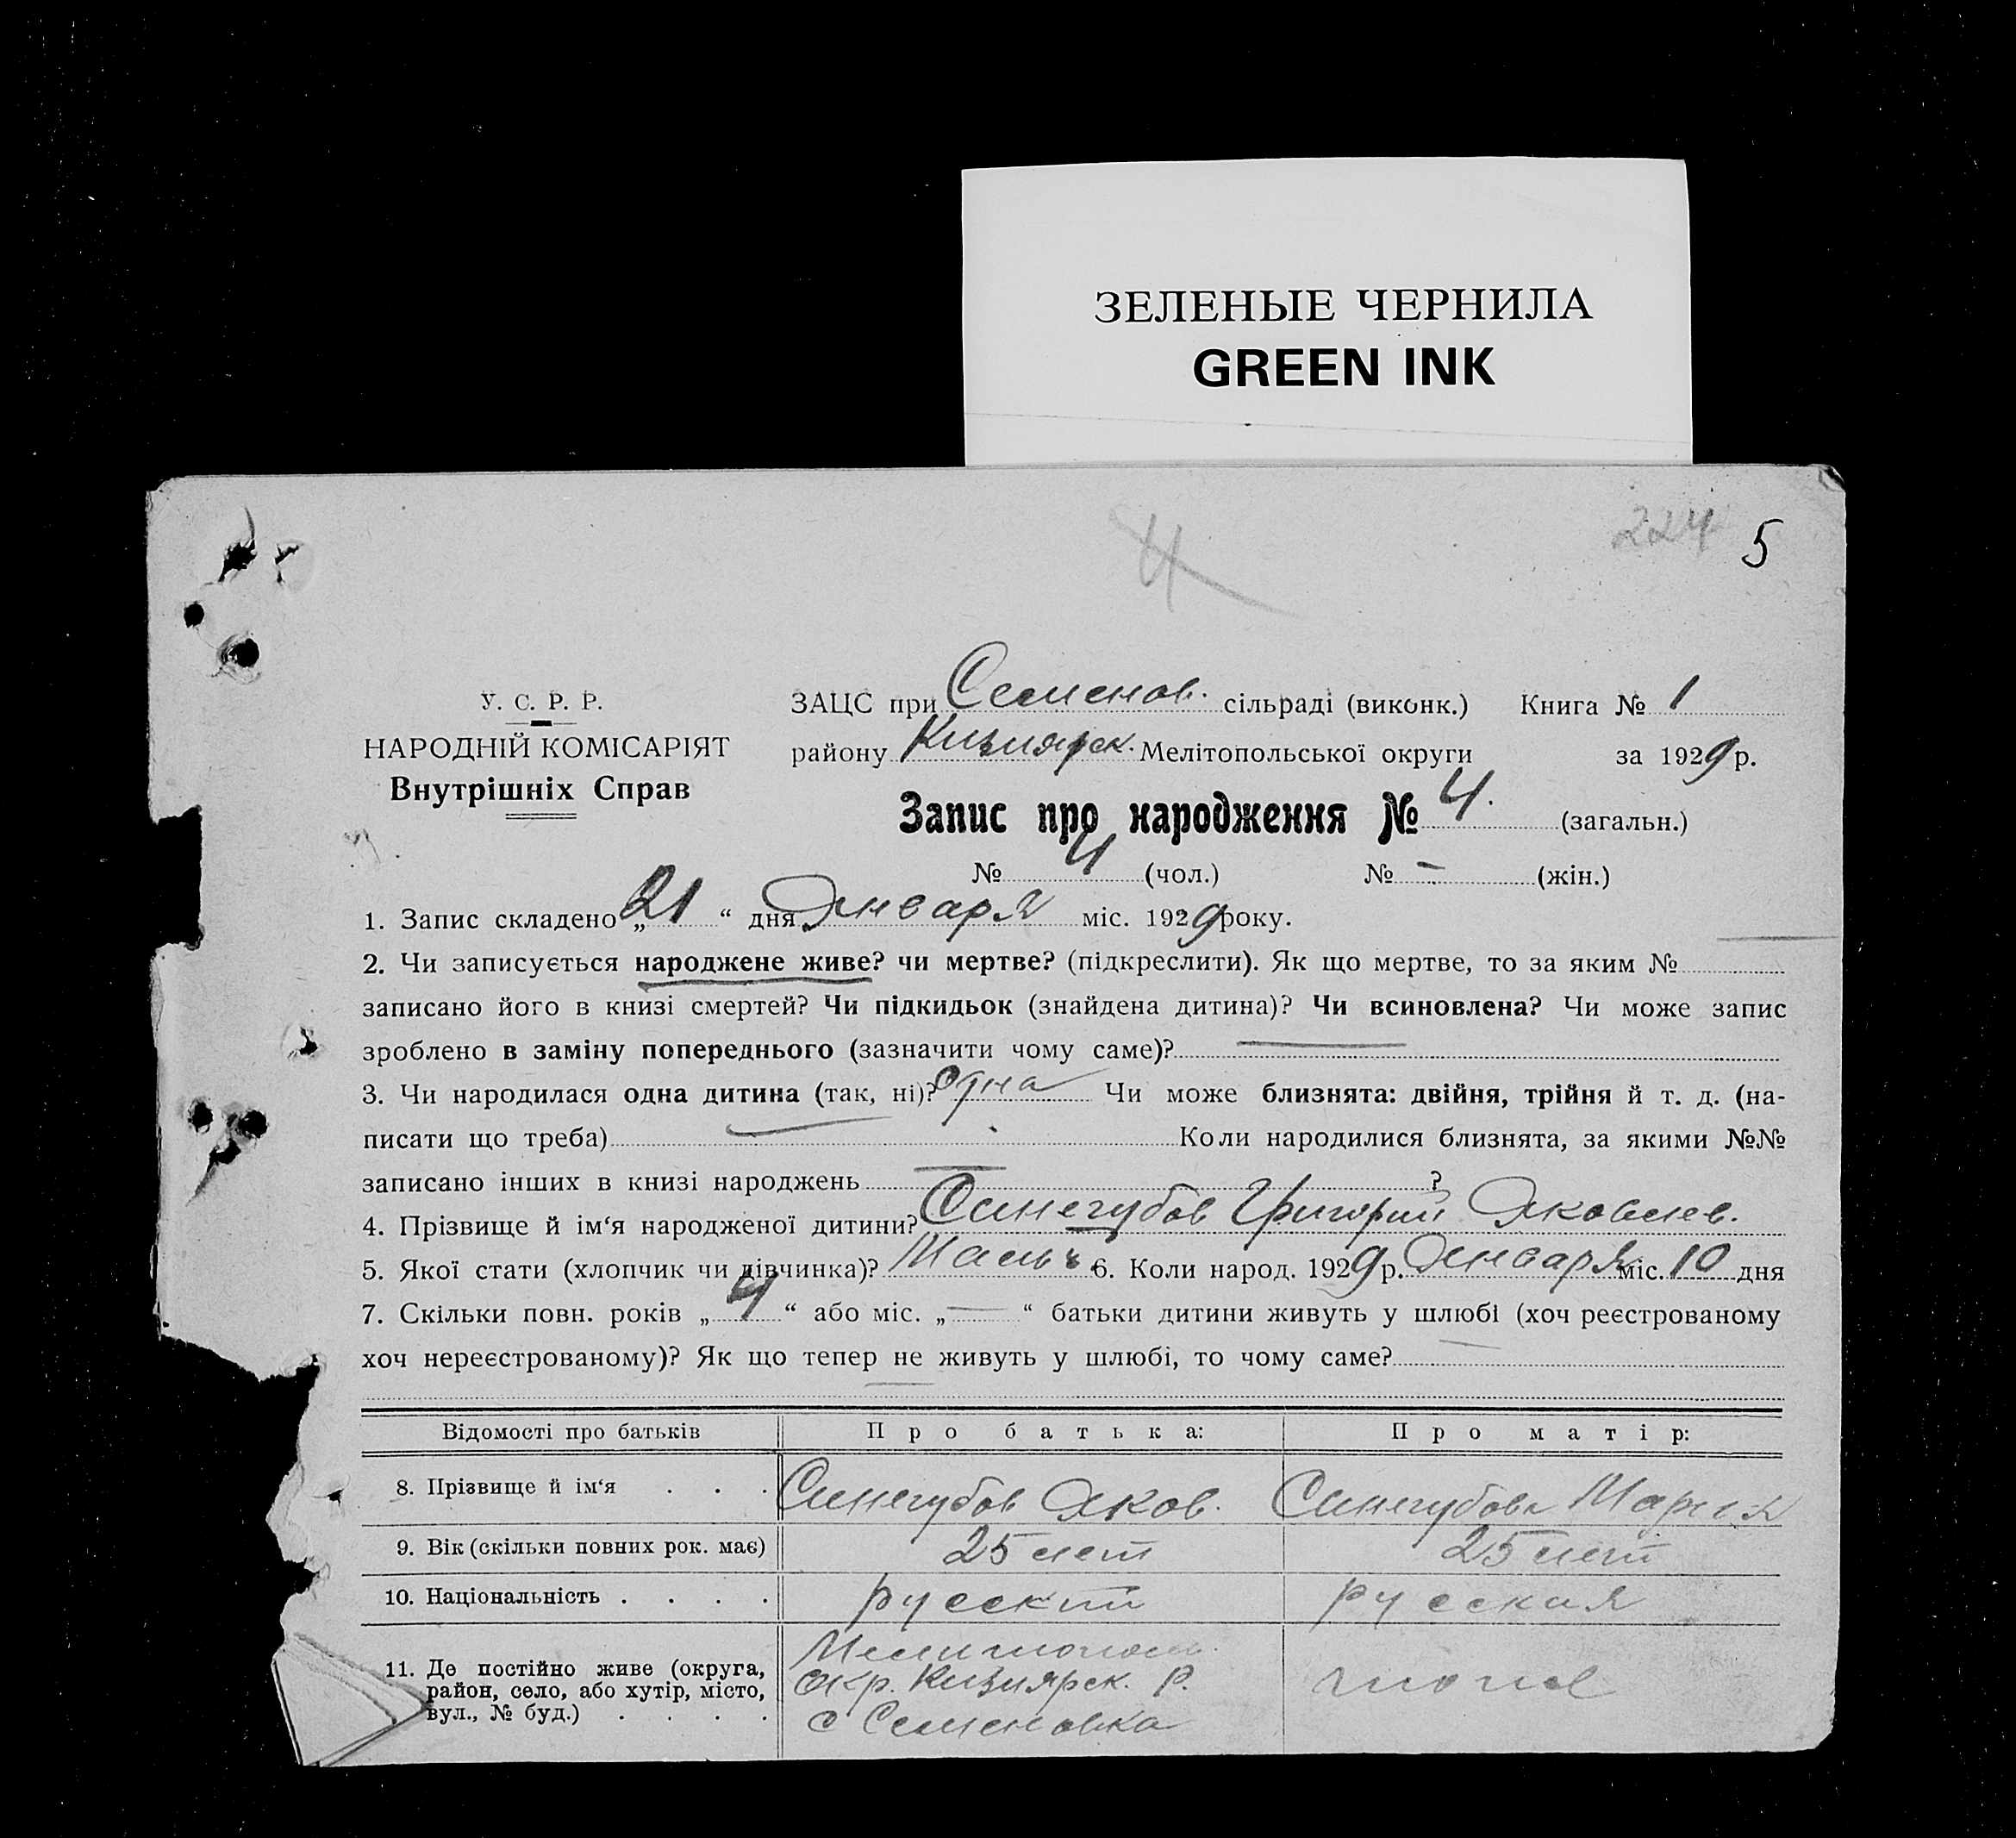 ЗЕЛЕНЫЕ ЧЕРНИЛА
GREEN INK
4
224 5
У. С. Р. Р.
НАРОДНІЙ КОМІСАРІЯТ
Внутрішніх Справ
ЗАЦС при Семенов. сільраді (виконк.) Книга № 1
району Кизиярск. Мелітопольської округи за 1929 р.
Запис про народження № 4. (загальн.)
№ 4 (чол.) № - (жін.)
1. Запис складено „21“ дня Января міс. 1929 року.
2. Чи записується народжене живе? чи мертве? (підкреслити). Як що мертве, то за яким №
записано його в книзі смертей? Чи підкидьок (знайдена дитина)? Чи всиновлена? Чи може запис
зроблено в заміну попереднього (зазначити чому саме)? —
3. Чи народилася одна дитина (так, ні)? Одна Чи може близнята: двійня, трійня й т. д. (на-
писати що треба) — Коли народилися близнята, за якими №№
записано інших в книзі народжень — ?
4. Прізвище й ім‘я народженої дитини? Синегубов Григорий Яковлев.
5. Якої стати (хлопчик чи дівчинка)? Мальч 6. Коли народ. 1929 р. Января міс. 10 дня
7. Скільки повн. років „4“ або міс. „—“ батьки дитини живуть у шлюбі (хоч реєстрованому
хоч нереєстрованому)? Як що тепер не живуть у шлюбі, то чому саме?
Відомості про батьків Про батька: Про матір:
8. Прізвище й ім‘я . . . Синегубов Яков. Синегубова Мария
9. Вік (скільки повних рок. має) 25 лет 25 лет
10. Національність . . . . русский русская
11. Де постійно живе (округа, район, село, або хутір, місто, вул., № буд.) . . . . Мелитополь. окр. Кизиярск. р. с Семеновка тоже